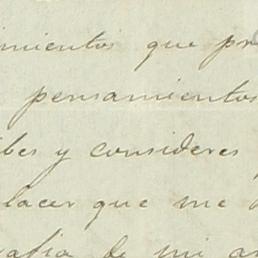 imientos que pr
pensamientos
bes y consideres
lacer que me
afia de mi am